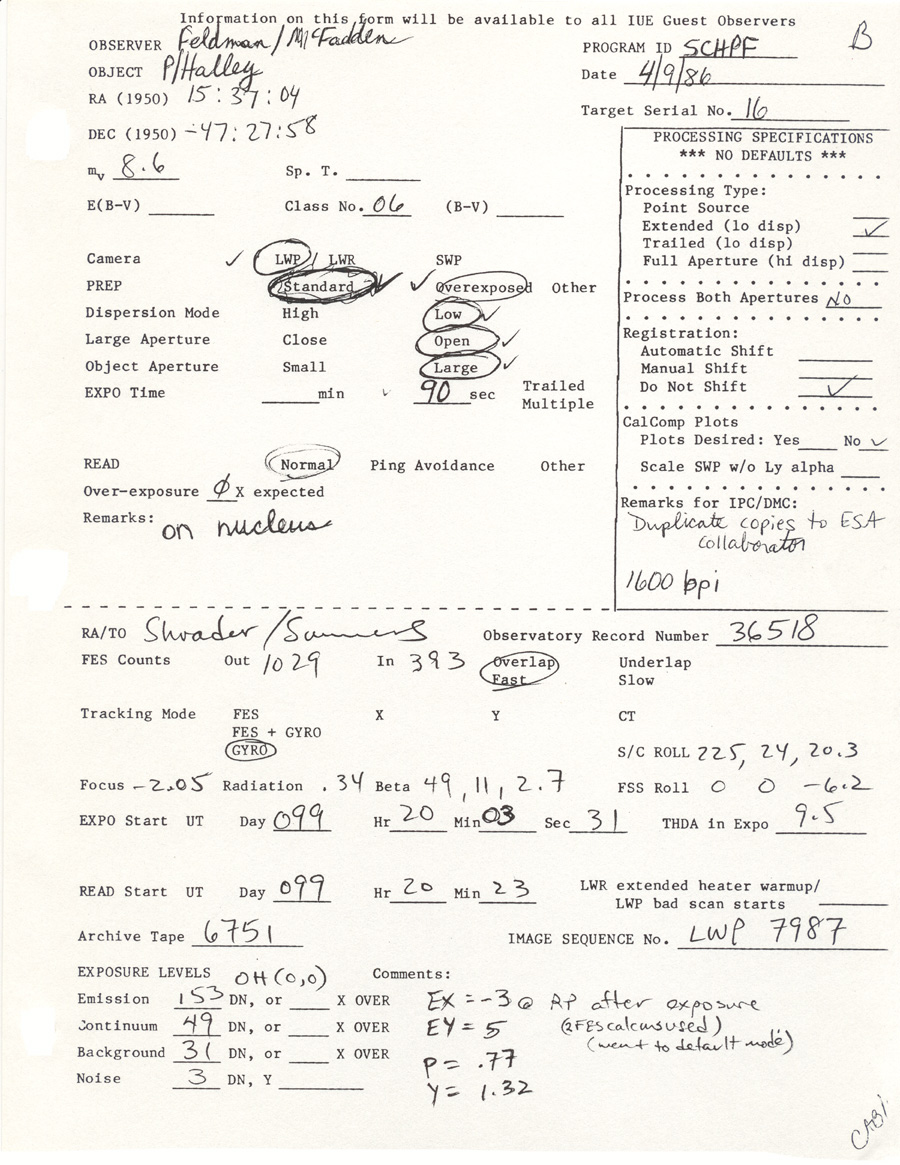 Information on this form will be available to all IUE Guest Observers
OBSERVER Feldman/McFadden
PROGRAM ID SCHPF
B
OBJECT P/Halley
Date 4/9/86
RA (1950) 15:37:04
Target Serial No. 16
DEC (1950) -47:27:58
mv 8.6 Sp. T.
E(B-V) Class No. 06 (B-V)
Camera ✓ LWP / LWR SWP
PREP Standard ✓ ✓ Overexposed Other
Dispersion Mode High Low ✓
Large Aperture Close Open ✓
Object Aperture Small Large ✓
EXPO Time min ✓ 90 sec Trailed
Multiple
READ Normal Ping Avoidance Other
Over-exposure Ø X expected
Remarks: on nucleus
PROCESSING SPECIFICATIONS
*** NO DEFAULTS ***
Processing Type:
Point Source
Extended (lo disp) ✓
Trailed (lo disp)
Full Aperture (hi disp)
Process Both Apertures NO
Registration:
Automatic Shift
Manual Shift
Do Not Shift ✓
CalComp Plots
Plots Desired: Yes No ✓
Scale SWP w/o Ly alpha
Remarks for IPC/DMC:
Duplicate copies to ESA
collaborator
1600 bpi
RA/TO Shrader/Sumners Observatory Record Number 36518
FES Counts Out 1029 In 393 Overlap Underlap
Fast Slow
Tracking Mode FES X Y CT
FES + GYRO
GYRO
S/C ROLL 225, 24, 20.3
Focus -2.05 Radiation .34 Beta 49, 11, 2.7 FSS Roll 0 0 -6.2
EXPO Start UT Day 099 Hr 20 Min 03 Sec 31 THDA in Expo 9.5
READ Start UT Day 099 Hr 20 Min 23 LWR extended heater warmup/
LWP bad scan starts
Archive Tape 6751 IMAGE SEQUENCE No. LWP 7987
EXPOSURE LEVELS OH(0,0) Comments:
Emission 153 DN, or X OVER
Continuum 49 DN, or X OVER
Background 31 DN, or X OVER
Noise 3 DN, Y
EX = -3 @ RP after exposure
EY = 5 (2FEScalcmsused)
(went to default mode)
P = .77
Y = 1.32